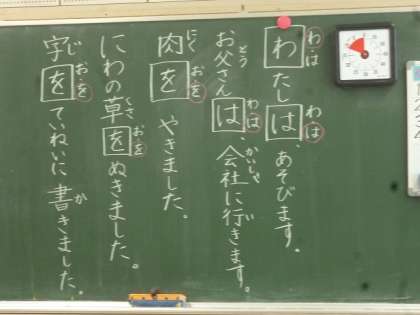 わたしは、あそびます。
わ・は
わ・は
お父さんは、会社に行きます。
とう
わ・は
かいしゃ
い
肉を やきました。
にく
お・を
にわの草をぬきました。
くさ
お・を
字をていねいに書きました。
じ
お・を
か